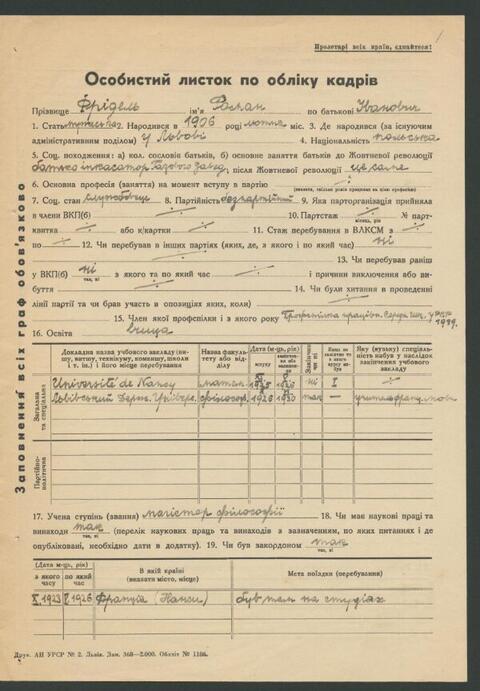 Пролетарі всіх країн, єднайтеся!
Особистий листок по обліку кадрів
Прізвище Фрідель ім'я Роман по батькові Іванович
1. Стать мужська 2. Народився в 1906 році лютня міс. 3. Де народився (за існуючим
адміністративним поділом) у Львові 4. Національність польська
5. Соц. походження: а) кол. сословіє батьків, б) основне заняття батьків до Жовтневої революції
батько інкасатор Газового завод., після Жовтневої революції це саме
6. Основна професія (заняття) на момент вступу в партію
(вказати, скільки років працював по цією професією)
7. Соц. стан службовець 8. Партійність безпартійний 9. Яка парторганізація прийняла
в члени ВКП(б) 10. Партстаж № парт-
місяць, рік
квитка або к/картки 11. Стаж перебування в ВЛКСМ з
по 12. Чи перебував в інших партіях (яких, де, з якого і по який час) ні
13. Чи перебував раніш
у ВКП(б) ні з якого та по який час і причини виключення або ви-
так, ні
буття 14. Чи були хитання в проведенні
лінії партії та чи брав участь в опозиціях яких, коли)
15. Член якої профспілки і з якого року
1939.
16. Освіта вища
Докладна назва учбового закладу (ви-
шу, витшу, технікуму, комвишу, школи
і т. ін.) і його місце перебування
Назва факуль-
тету або від-
ділу
Дата (м-ць, рік)
вступу
Закінчив
чи ні
Яку (вузьку) спеціаль-
ність набув у наслідок
закінчення учбового
закладу
Загальна
та спеціальна
Université de Nancy матем. 1923 1926 ні I
Львівський Держ. Універс. філософ. 1926 1930 так — учитель франц. мови
Партійно-
політична
17. Учена ступінь (звання) магістер філософії 18. Чи має наукові праці та
винаходи так (перелік наукових праць та винаходів з зазначенням, по яких питаннях і де
так, ні
опубліковані, необхідно дати в додатку). 19. Чи був закордоном так
так, ні
Дата (м-ць, рік)
з якого часу
по який час
В якій країні
(вказати місто, місце)
Мета поїздки (перебування)
X.1923 V.1926 Франція (Нансі) був там на студіях
Друк. АН УРСР № 2. Львів. Зам. 368—2.000. Обліт № 1186.
Заповнення всіх граф обов'язково